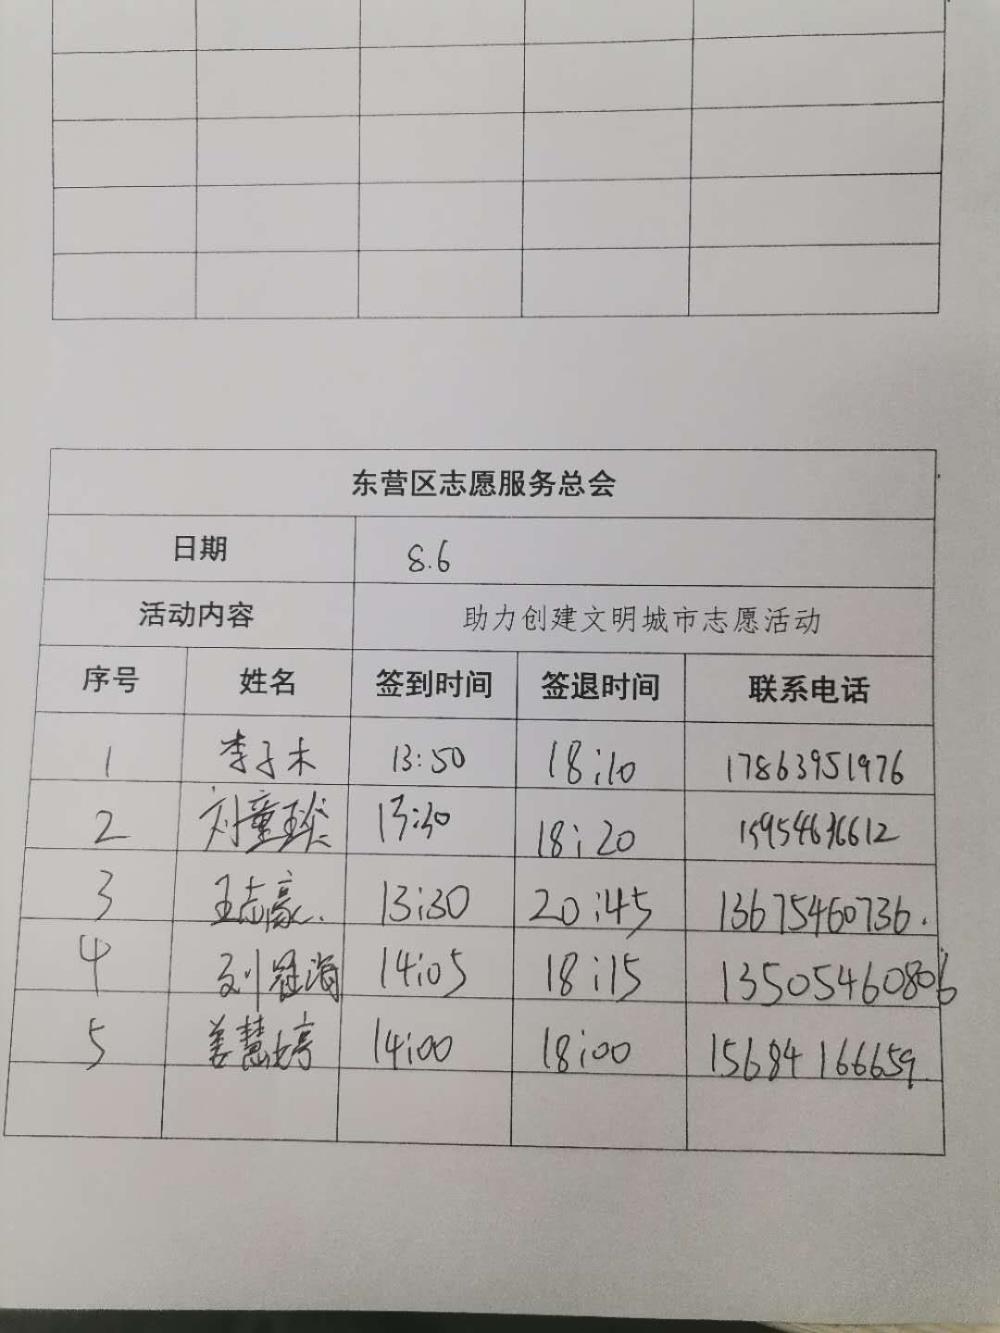 东营区志愿服务总会
日期 8.6
活动内容 助力创建文明城市志愿活动
序号 姓名 签到时间 签退时间 联系电话
1 李子木 13:50 18:10 17863951976
2 刘童琰 13:30 18:20 15954636612
3 王志豪. 13:30 20:45 13675460736.
4 刘冠海 14:05 18:15 13505460806
5 姜慧婷 14:00 18:00 15684166659